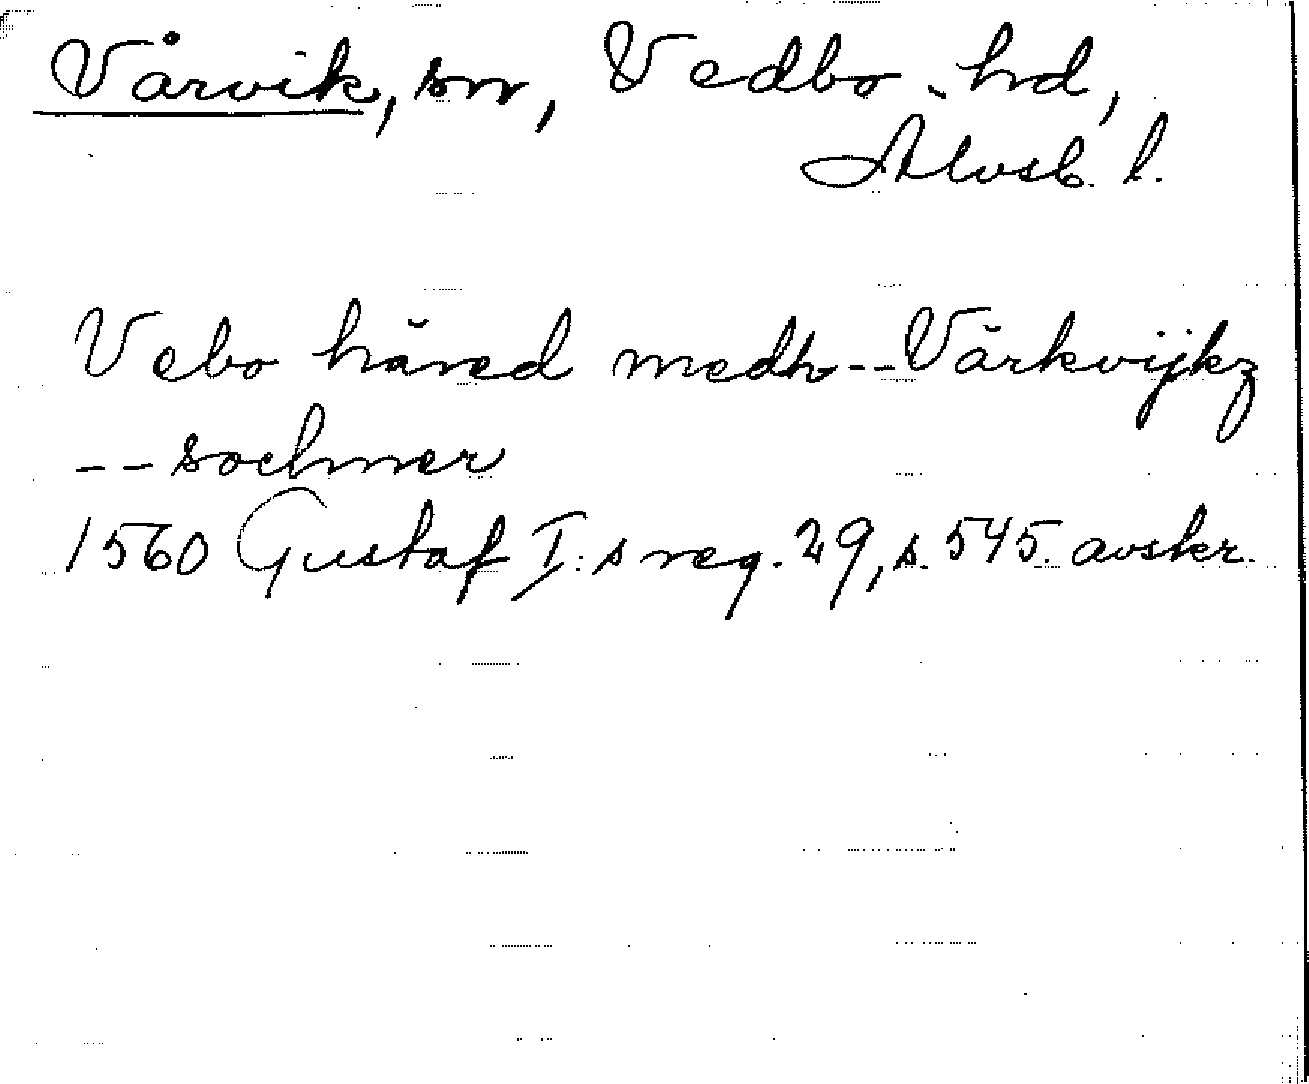 Vårvik, sn, Vedbo hd,
Älvsb. l.
Vebo häred medh -- Vårkvijkz
-- sochner
1560 Gustaf I:s reg. 29, s. 545. avskr.